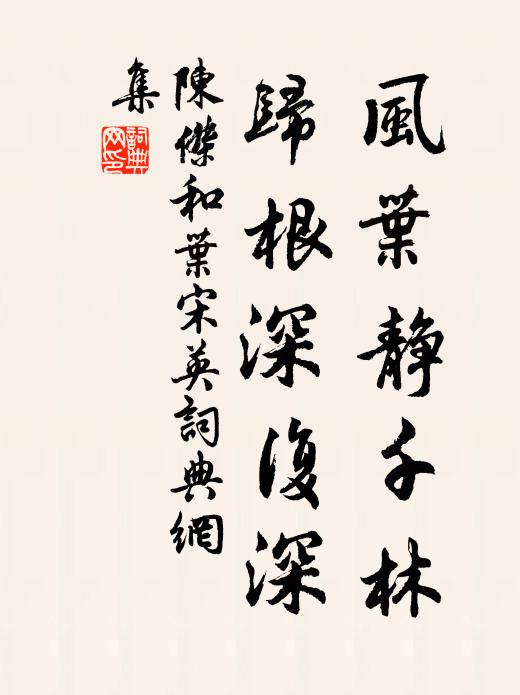 風葉靜千林
歸根深復深
陳傑和葉宋英詞典網
集
詞典
网印